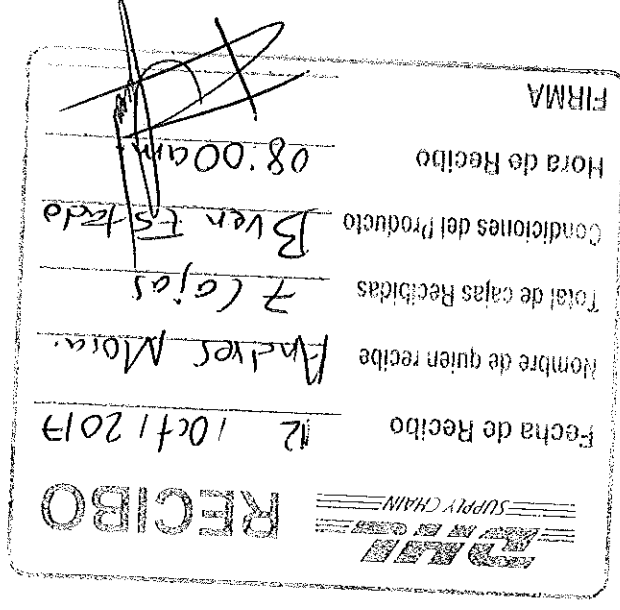 DHL RECIBO
SUPPLY CHAIN
Fecha de Recibo 12 / Oct / 2017
Nombre de quien recibe Andres Mora.
Total de cajas Recibidas 7 Cajas
Condiciones del Producto Buen Estado
Hora de Recibo 08:00am.
FIRMA